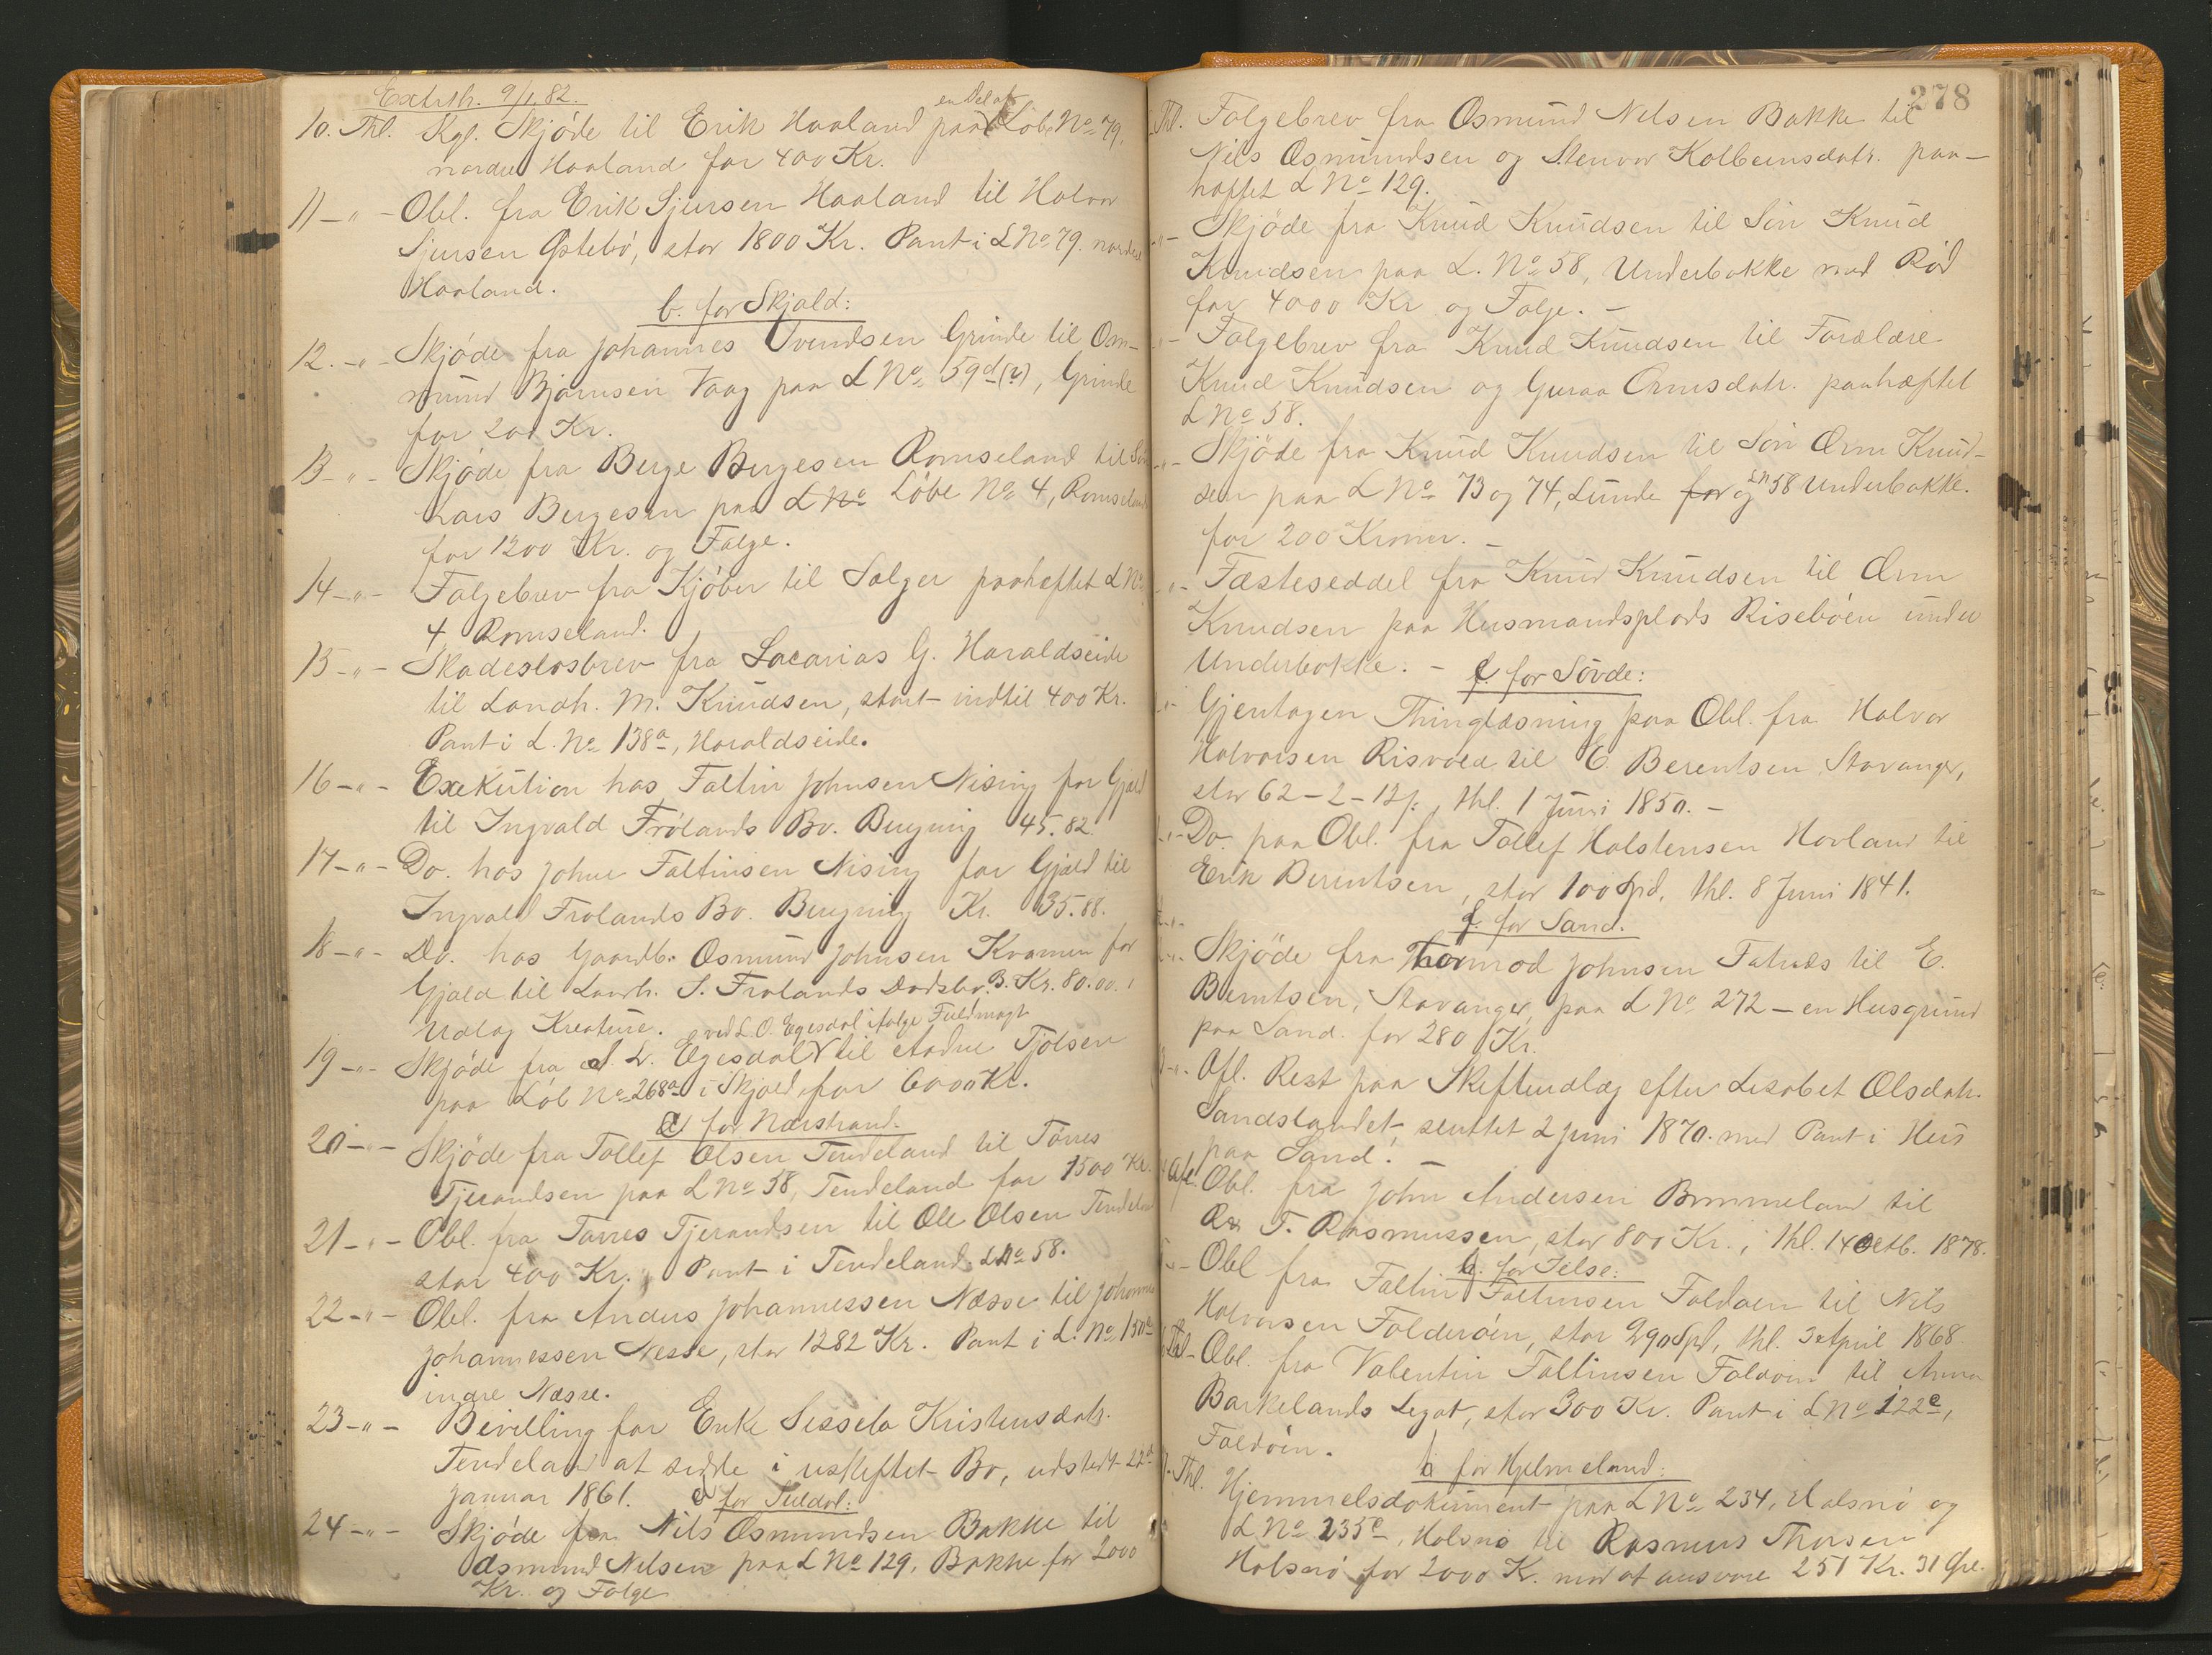 Extrth. 9/1. 82.
10. Thl. Kgl. Skjöde til Erik Haaland paa en Del af Löbe No 79,
nordre Haaland for 400 Kr.
11 -"- Obl. fra Erik Sjursen Haaland til Halvor
Sjursen Östebö, stor 1800 Kr. Pant i L No 79. nordre
Haaland.
b. for Skjold:
12. -"- Skjöde fra Johannes Svendsen Grinde til Om-
mund Bjørnsen Vaag paa L No 59d(2), Grinde
for 200 Kr.
13 -"- Skjöde fra Berge Bergesen Romseland til Sön
Lars Bergesen paa L No Löbe No 4, Romseland
for 1200 Kr. og Folge.
14 -"- Folgebrev fra Kjöber til Sælger paaheftet L No
4 Romseland.
15 -"- Skadeslosbrev fra Sacarias G. Haraldseide
til Landh. M. Knudsen, stort indtil 400 Kr.
Pant i L. No 138a, Haraldseide.
16 -"- Exekution hos Faltin Johnsen Nising for Gjæld
til Ingvald Frölands Bo. Bugning 45.82.
17 -"- Do. hos Johne Faltinsen Nising for Gjæld til
Ingvald Frolands Bo. Bugning Kr. 35.88.
18 -"- Do. hos Gaardb. Osmund Johnsen Kvamen for
Gjæld til Landh. S. Frolands Dødsbo. B. Kr. 80.00. i
Udlag Kreature.
ved L. O. Egesdal ifølge Fuldmagt
19 -"- Skjöde fra S. L. Egesdal til Aadne Tjölsen
paa Löb No 268a i Skjold for 6000 Kr.
d for Nærstrand.
20 -"- Skjöde fra Tollef Olsen Tendeland til Törres
Tjerandsen paa L No 58, Tendeland for 1500 Kr.
21 -"- Obl. fra Tørres Tjerandsen til Ole Olsen Tendeland
stor 400 Kr., Pant i Tendeland L No 58.
22 -"- Obl. fra Anders Johannessen Næsse til Johannes
Johannessen Nesse, stor 1282 Kr. Pant i L. No 150a
indre Næsse.
23 -"- Bevilling for Enke Sessela Kristensdatr.
Tendeland at sidde i uskiftet Bo, udstedt 22d
Januar 1861.
e for Suldal:
24 -"- Skjöde fra Nils Osmundsen Bakke til
Osmund Nilsen paa L No 129, Bakke for 2000
Kr. og Folge
278
Thl. Folgebrev fra Osmund Nelsen Bakke til
Nils Osmundsen og Stenvor Kolbeinsdatr. paa-
heftet L No 129.
-"- Skjöde fra Knud Knudsen til Sön Knud
Knudsen paa L. No 58, Underbakke med Röd
for 4000 Kr og Folge. -
-"- Folgebrev fra Knud Knudsen til Forældre
Knud Knudsen og Guraa Ormsdatr. paahæftet
L No 58.
-"- Skjöde fra Knud Knudsen til Sön Orm Knud-
sen paa L No 73 og 74, Lunde for og LN 58 Underbakke.
for 200 Kroner. -
-"- Fæsteseddel fra Knud Knudsen til Orm
Knudsen paa Husmandsplads Risebóen under
Underbakke. -
f. for Sövde:
-"- Gjentagen Thinglæsning paa Obl. fra Halvor
Halvorsen Risvold til E. Berentsen Stavanger,
stor 62 - 2 - 12 s, thl. 1 Juni 1850. -
-"- Do. paa Obl. fra Tollef Halstensen Hovland til
Erik Berentsen, stor 100 Spd. thl. 8 Juni 1841.
g. for Sand.
-"- Skjöde fra Thormod Johnsen Fatnæs til E.
Berntsen, Stavanger, paa L No 272 - en Husgrund
paa Sand for 280 Kr.
-"- Afl. Rest paa Skifteudlæg efter Lisabet Olsdatr.
Sandslandet sluttet 2 Juni 1870. med Pant i Hus
paa Sand. -
Afl. Obl. fra John Andersen Brommeland til
R. T. Rasmussen, stor 800 Kr., thl. 14 Octb. 1878.
h. for Jelse:
-"- Obl fra Faltin Faltinsen Foldöen til Nils
Halvorsen Folderöen, stor 290 Spd, thl. 3 April 1868
Thl - Obl. fra Valentin Faltinsen Foldöen til Anna
Barkelands Legat, stor 300 Kr. Pant i L No 122e,
Foldöen.
i for Hjelmeland:
Thl. Hjemmelsdokument paa L No 234, Halsnö og
L No 235e, Halsnö til Rasmus Thorsen
Halsnö for 2000 Kr. mod at ansvare 251 Kr. 31 Øre.